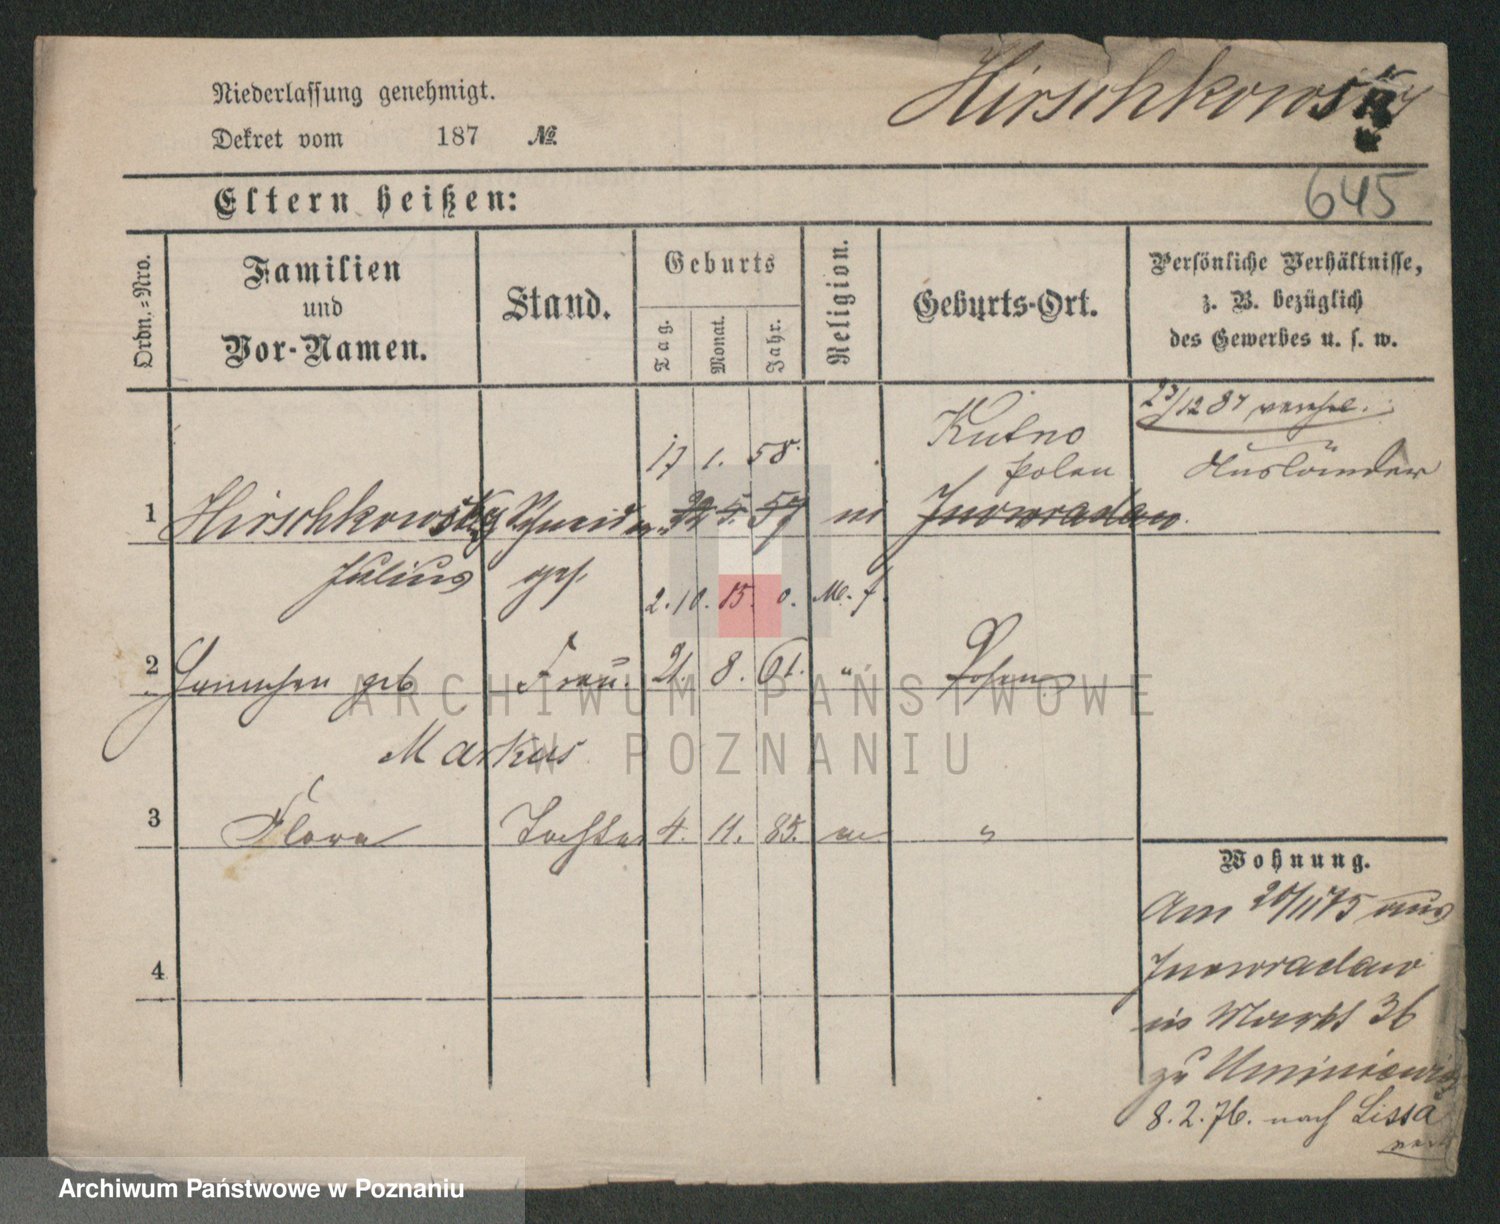 Niederlassung genehmigt.
Hirschkowsky
Dekret vom 187 №
645
Eltern heißen:
Ordn.-Nro.
Familien
und
Vor-Namen.
Stand.
Geburts
Tag.
Monat.
Jahr.
Religion.
Geburts-Ort.
Persönliche Verhältnisse,
z. B. bezüglich
des Gewerbes u. s. w.
23/12 87
Kutno
17 1. 58.
Polen
Ausländer
1 Hirschkowsky Schneider 22 5. 57 m Inowraclaw.
Julius ges.
2. 10. 15. 0. M. f.
2 geb Frau. 21. 8. 61. " Posen
Markus
3 Flora Tochter 4. 11. 85. m "
Wohnung.
Am 20/11 75 aus
Inowraclaw
in Markt 36
zu
8. 2. 76. nach Lissa
4
ARCHIWUM PAŃSTWOWE
W POZNANIU
Archiwum Państwowe w Poznaniu